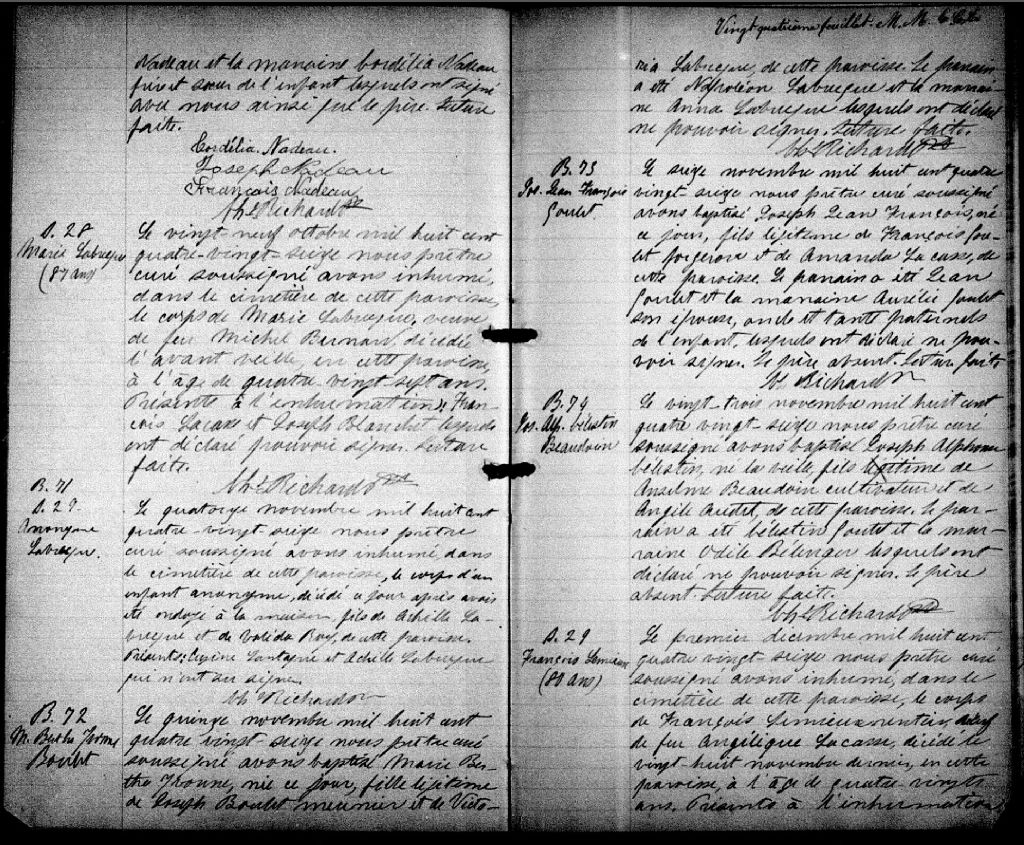 Nadeau et la marraine Cordélia Nadeau
frère et soeur de l'enfant lesquels ont signé
avec nous ainsi que le père. Lecture
faite.
Cordélia Nadeau.
Joseph Nadeau
François Nadeau
Chs Richard Ptre
S. 28
Marie Labrecque
(87 ans)
Le vingt neuf octobre mil huit cent
quatre-vingt-seize nous prêtre
curé soussigné avons inhumé,
dans le cimetière de cette paroisse,
le corps de Marie Labrecque, veuve
de feu Michel décédée
l'avant veille, en cette paroisse,
à l'âge de quatre-vingt sept ans.
Présents à l'inhumation: Fran-
çois Lacasse et Joseph Blanchet lesquels
ont déclaré pouvoir signer. Lecture
faite.
Chs Richard Ptre
B. 71
S. 29
Anonyme
Labrecque.
Le quatorze novembre mil huit cent
quatre-vingt-seize nous prêtre
curé soussigné avons inhumé, dans
le cimetière de cette paroisse, le corps d'un
enfant anonyme, décédé ce jour après avoir
été ondoyé à la maison, fils de Achille La-
brecque et de Valéda Roy, de cette paroisse.
Présents: et Achille Labrecque
qui n'ont su signer.
Chs Richard
B. 72
M. Bertha Yvonne
Boulet
Le quinze novembre mil huit cent
quatre vingt-seize nous prêtre curé
soussigné avons baptisé Marie Ber-
tha Yvonne, née ce jour, fille légitime
de Joseph Boulet meunier et de Victo-
Vingt quatrième feuillet.
ria Labrecque, de cette paroisse. Le parrain
a été Napoléon Labrecque et la marrai-
ne Anna Labrecque lesquels ont déclaré
ne pouvoir signer. Lecture faite.
Chs Richard Ptre
B. 73
Jos. Jean François
Goulet
Le seize novembre mil huit cent quatre
vingt-seize nous prêtre curé soussigné
avons baptisé Joseph Jean François, né
ce jour, fils légitime de François Gou-
let forgeron et de Amanda Lacasse, de
cette paroisse. Le parrain a été Jean
Goulet et la marraine Aurélie Goulet
son épouse, oncle et tante paternels
de l'enfant, lesquels ont déclaré ne pou-
voir signer. Le père absent. Lecture faite
Chs Richard
B. 74
Jos. Alp. Célestin
Beaudoin
Le vingt-trois novembre mil huit cent
quatre vingt-seize nous prêtre curé
soussigné avons baptisé Joseph Alphonse
Célestin, né la veille, fils légitime de
Anselme Beaudoin cultivateur et de
Angèle Audet, de cette paroisse. Le par-
rain a été Célestin Goulet et la mar-
raine Odile Bélanger lesquels ont
déclaré ne pouvoir signer. Le père
absent. Lecture faite.
Chs Richard Ptre
S. 29
François Lemieux
(80 ans)
Le premier décembre mil huit cent
quatre vingt-seize nous prêtre curé
soussigné avons inhumé, dans le
cimetière de cette paroisse, le corps
de François Lemieux rentier, veuf
de feu Angélique Lacasse, décédé le
vingt huit novembre dernier, en cette
paroisse, à l'âge de quatre-vingts
ans. Présents à l'inhumation